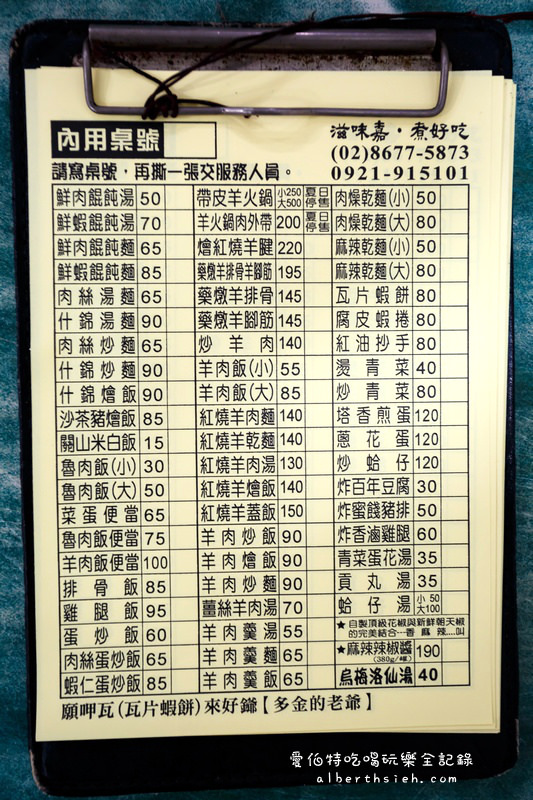 內用桌號
滋味嘉・煮好吃
(02)8677-5873
0921-915101
請寫桌號，再撕一張交服務人員。
鮮肉餛飩湯 50
鮮蝦餛飩湯 70
鮮肉餛飩麵 65
鮮蝦餛飩麵 85
肉絲湯麵 65
什錦湯麵 90
肉絲炒麵 65
什錦炒麵 90
什錦燴飯 90
沙茶豬燴飯 85
關山米白飯 15
魯肉飯(小) 30
魯肉飯(大) 50
菜蛋便當 65
魯肉飯便當 75
羊肉飯便當 100
排骨飯 85
雞腿飯 95
蛋炒飯 60
肉絲蛋炒飯 65
蝦仁蛋炒飯 85
帶皮羊火鍋 小250 大500 夏日停售
羊火鍋肉外帶 200 夏日停售
燴紅燒羊腱 220
藥燉羊排骨羊腳筋 195
藥燉羊排骨 145
藥燉羊腳筋 145
炒羊肉 140
羊肉飯(小) 55
羊肉飯(大) 85
紅燒羊肉麵 140
紅燒羊乾麵 140
紅燒羊肉湯 130
紅燒羊燴飯 140
紅燒羊蓋飯 150
羊肉炒飯 90
羊肉燴飯 90
羊肉炒麵 90
薑絲羊肉湯 70
羊肉羹湯 55
羊肉羹麵 65
羊肉羹飯 65
肉燥乾麵(小) 50
肉燥乾麵(大) 80
麻辣乾麵(小) 50
麻辣乾麵(大) 80
瓦片蝦餅 80
腐皮蝦捲 80
紅油抄手 80
燙青菜 40
炒青菜 80
塔香煎蛋 120
蔥花蛋 120
炒蛤仔 120
炸百年豆腐 30
炸蜜餞豬排 50
炸香滷雞腿 60
青菜蛋花湯 35
貢丸湯 35
蛤仔湯 小50 大100
★自製頂級花椒與新鮮朝天椒
的完美結合---香麻辣....叫
★麻辣辣椒醬 190
(380g/罐)
烏梅洛仙湯 40
願呷瓦(瓦片蝦餅)來好鎰【多金的老爺】
愛伯特吃喝玩樂全記錄
alberthsieh.com